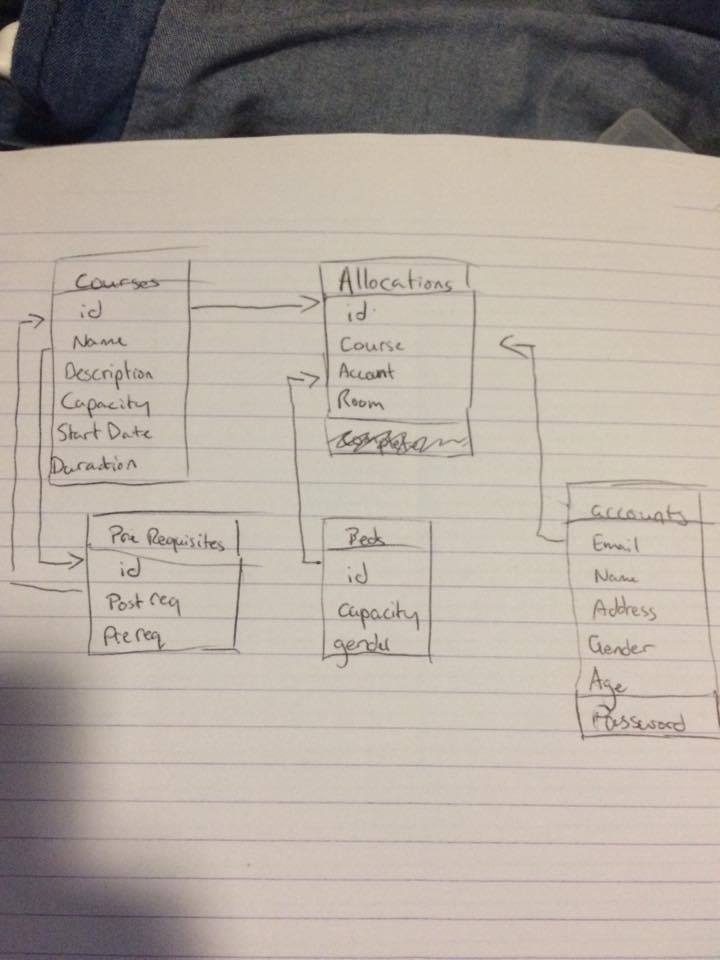 Courses
id
Name
Description
Capacity
Start Date
Duraction
Allocations
id
Course
Account
Room
Pre Requisites
id
Post req
Pre req
Beds
id
Capacity
gender
accounts
Email
Name
Address
Gender
Age
Password